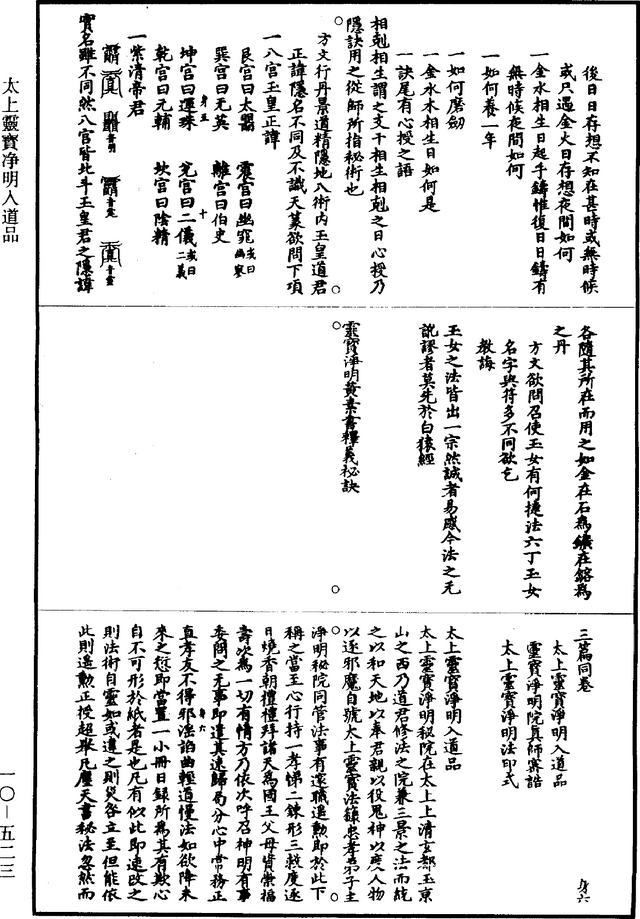 後日日存想不知在甚時或無時候
或只遇金火日存想夜間如何
一金水相生日起手鑄惟復日日鑄有
無時候夜間如何
一如何養一年
一如何磨劒
一金水木相生日如何是
一訣尾有心授之語
相剋相生謂之支干相生相剋之日心授乃
隱訣用之從師所指秘術也
方文行丹景道精隱地八術內玉皇道君
正諱隱名不同及不識天篆欲問下項
一八宮玉皇正諱
艮宮曰太嚚 震宮曰幽窕或曰幽寥
巽宮曰无英 離宮曰伯史
坤宮曰運珠 兌宮曰二儀或曰二義
身五 十
乾宮曰元輔 坎宮曰陰精
一紫清帝君
實名雖不同然八宮皆北斗玉皇君之隱諱
各隨其所在而用之如金在石為鑛在鎔為
之丹
方文欲問召使玉女有何捷法六丁玉女
名字與符多不同欲乞
教誨
玉女之法皆出一宗然誠者易感今法之元
說謬者莫先於白猿經
靈寶淨明黃素書釋義祕訣
三篇同卷
太上靈寶淨明入道品
靈寶淨明院真師密誥
太上靈寶淨明法印式
身六
太上靈寶淨明入道品
太上靈寶淨明秘院在太上上清玄都玉京
山之西乃道君修法之院兼三景之法而統
之以和天地以奉君親以役鬼神以度人物
以逐邪魔自號太上靈寶法籙忠孝弟子主
淨明秘院同管法事有遂職遥勳即於此下
稱之當至心行持一孝悌二鍊形三救度逐
日燒香朝禮禮拜諸天為國王父母資崇福
壽次為一切有情方乃依次呼召神明有事
委問之无事即遣其速歸局分心中常務正
直孝友不得邪滛諂曲輕道慢法如欲降未
身六
來之愆即當置一小冊日録所為其有欺心
自不可形於紙者是也凡有似此即速改之
則法術自靈如或違之則災咎立至但能依
此則遥勳正授超躐凡塵天書秘法忽然而
太上靈寶淨明入道品
一〇—五二三